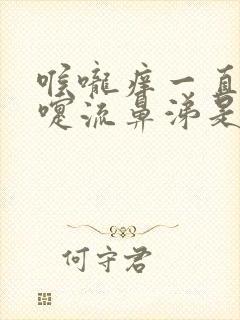 喉咙痒一直
嚏流鼻涕是
何守君